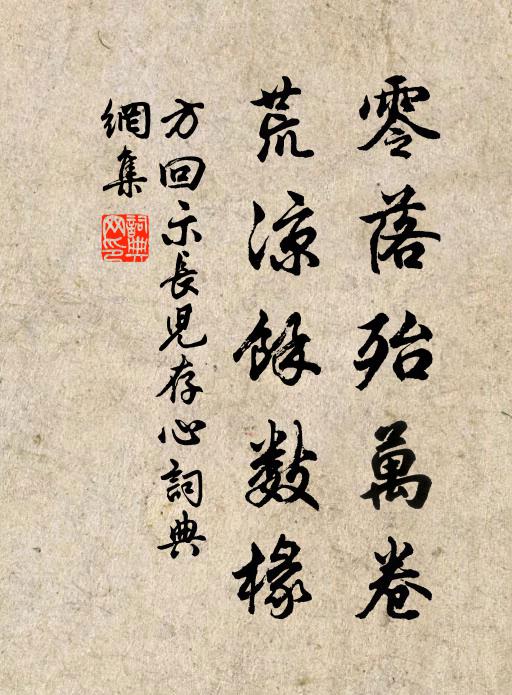 零落殆萬卷
荒涼餘數椽
方回示長兒存心詞典
網集
詞典
网印